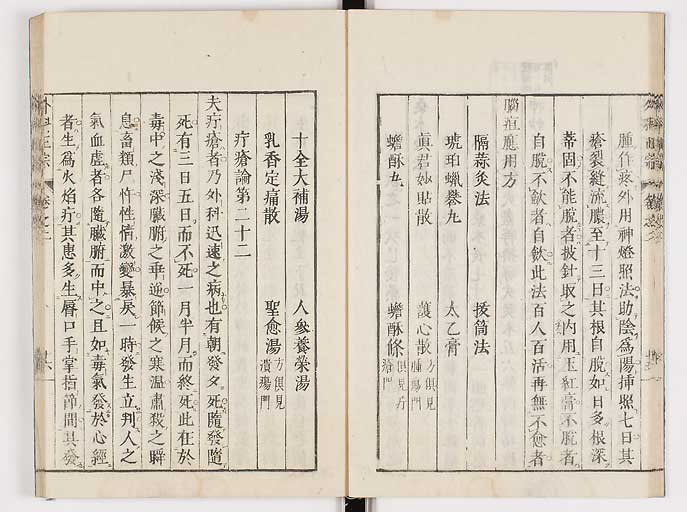 腫作疼外用神燈照法助陰為陽挿照七日其
瘡裂縫流膿至十三日其根自脫如日多根深
蒂固不能脫者披針取之內用玉紅膏不脫者
自脫不歛者自歛此法百人百活再無不愈者
腦疽應用方
隔蒜灸法 拔筒法
琥珀蠟礬丸 太乙膏
真君妙貼散 護心散 方俱見腫瘍門
蟾酥丸 蟾酥條 俱見疔瘡門
十全大補湯 人參養榮湯
乳香定痛散 聖愈湯 方俱見潰瘍門
疔瘡論第二十二
夫疔瘡者乃外科迅速之病也有朝發夕死隨發隨
死有三日五日而不死一月半月而終死此在於
毒中之淺深臟腑之乖逆節候之寒溫肅殺之瞬
息畜類尸忤性情激變暴戾一時發生立判人之
氣血虛者各隨臟腑而中之且如毒氣發於心經
者生為火焰疔其患多生脣口手掌指節間其發